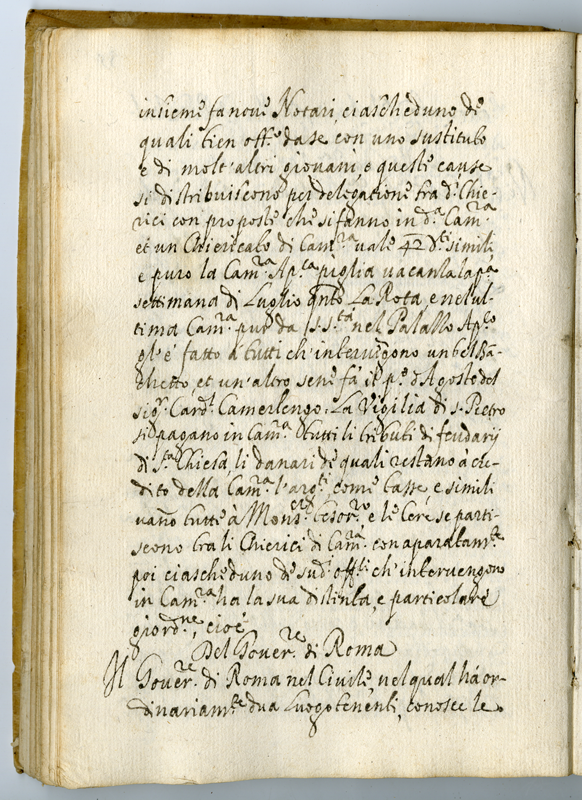 insieme fa nove Notari, ciascheduno de
quali tien off.º da se con uno sustituto
e di molt'altri giovani, e queste cause
si distribuiscono per delegatione fra d.i Chie-
rici con proposte che si fanno in d.a Cam.ra
et un Chiericato di Cam.ra vale 42 d.ti simili
e puro la Cam.ra Ap.ca piglia vacanza la p.a
settimana di Luglio q.nto La Rota, e nel ul-
tima Cam.ra pur da S. S.tà nel Palazzo Ap.co
gl'è fatto à tutti ch'intervengono un bel Ba-
chetto, et un'altro sene fà il p.º d'Agosto del
sig.r Card.l Camerlengo. La Vigilia di S. Pietro
si pagano in Cam.ra tutti li tributi di feudarij
di S.ta Chiesa li danari de quali restano à cre-
dito della Cam.ra l'arg.ti, come tasse, e simili
vano tutte à Mons.r Tesor.ro e le Cere se parti-
scono tra li Chierici di Cam.ra con aparatam.te
poi ciascheduno de sud.i off.li ch'intervengono
in Cam.ra ha la sua distinta, e particolare
giord.ne, cioè
Del Gover.re di Roma
Il Gover.re di Roma nel Civile, nel qual há or-
dinariam.te dua Luogotenenti, conosce le